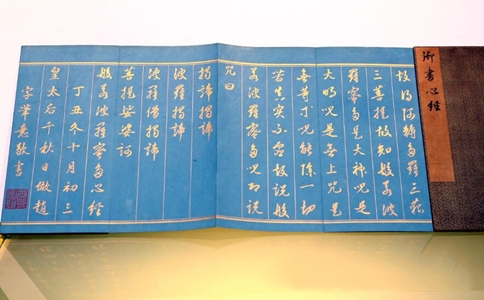 御書心經
故得阿耨多羅三藐
三菩提故知般若波
羅蜜多是大神咒是
大明咒是無上咒是
無等等咒能除一切
苦真實不虛故說般
若波羅蜜多咒即說
咒曰
揭諦揭諦
波羅揭諦
波羅僧揭諦
菩提娑婆訶
般若波羅蜜多心經
丁丑冬十月初三
皇太后千秋日倣趙
筆意敬書